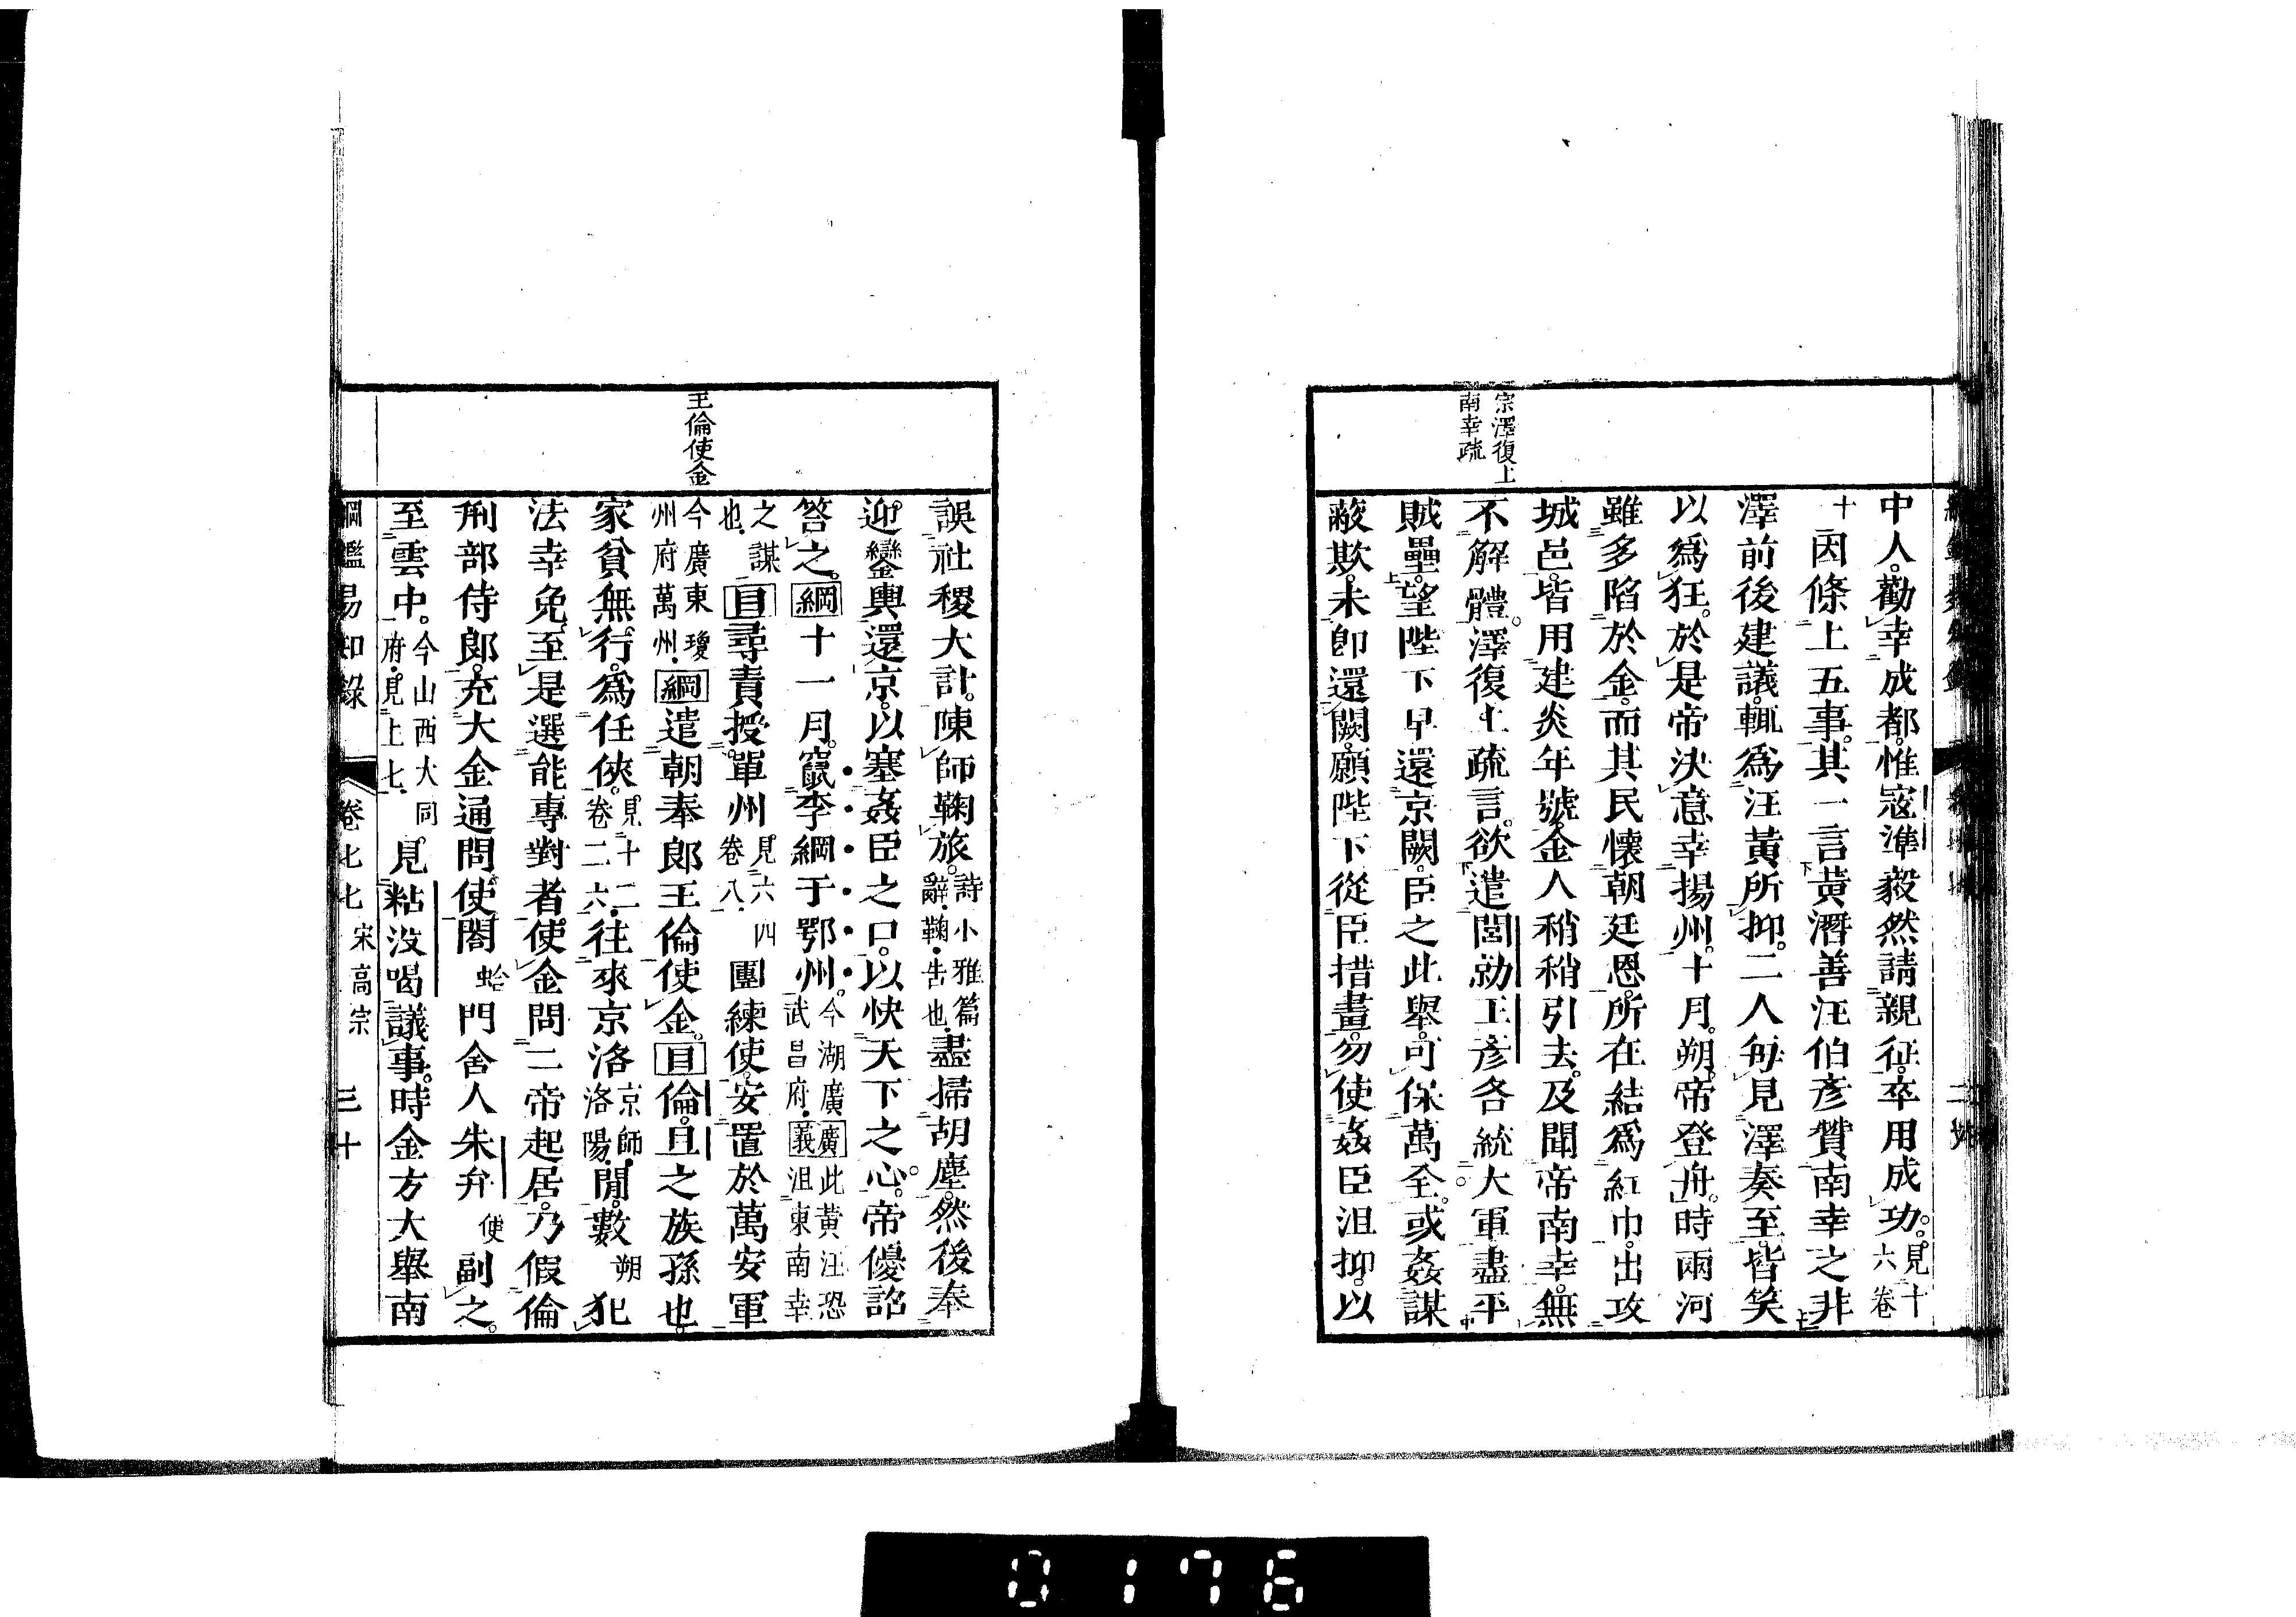 宗澤復上
南幸疏
中人。勸幸成都。惟寇準毅然請親征。卒用成功。見十六卷
十因條上五事。其一言黃潛善汪伯彥贊南幸之非
澤前後建議。輒爲汪黃所抑。二人每見澤奏至。皆笑
以爲狂。於是帝決意幸揚州。十月。朔。帝登舟。時兩河
雖多陷於金。而其民懷朝廷恩。所在結爲紅巾。出攻
城邑。皆用建炎年號。金人稍稍引去。及聞帝南幸。無
不解體。澤復上疏言。欲遣閭勍王彥各統大軍。盡平
賊壘。望陛下早還京闕。臣之此舉。可保萬全。或姦謀
蔽欺。未卽還闕。願陛下從臣措畫。勿使姦臣沮抑。以
王倫使金
誤社稷大計。陳師鞠旅。詩小雅篇辭。鞠。告也。盡掃胡塵。然後奉
迎鑾輿還京。以塞姦臣之口。以快天下之心。帝優詔
答之。綱十一月。竄李綱于鄂州。今湖廣武昌府。廣義此黃汪恐沮東南幸
之謀也。目尋責授。單州見六四卷八團練使。安置於萬安軍
今廣東瓊州府萬州。綱遣朝奉郎王倫使金。目倫。旦之族孫也。
家貧無行。爲任俠。見十二卷二六往來京洛京師。洛陽。閒。數朔犯
法幸免。至是選能專對者。使金問二帝起居。乃假倫
刑部侍郎。充大金通問使。閤蛤門舍人朱弁使副之。
至雲中。今山西大同府。見上七。見粘沒喝議事。時金方大舉南
綱鑑易知錄 卷七七 宋高宗 三十